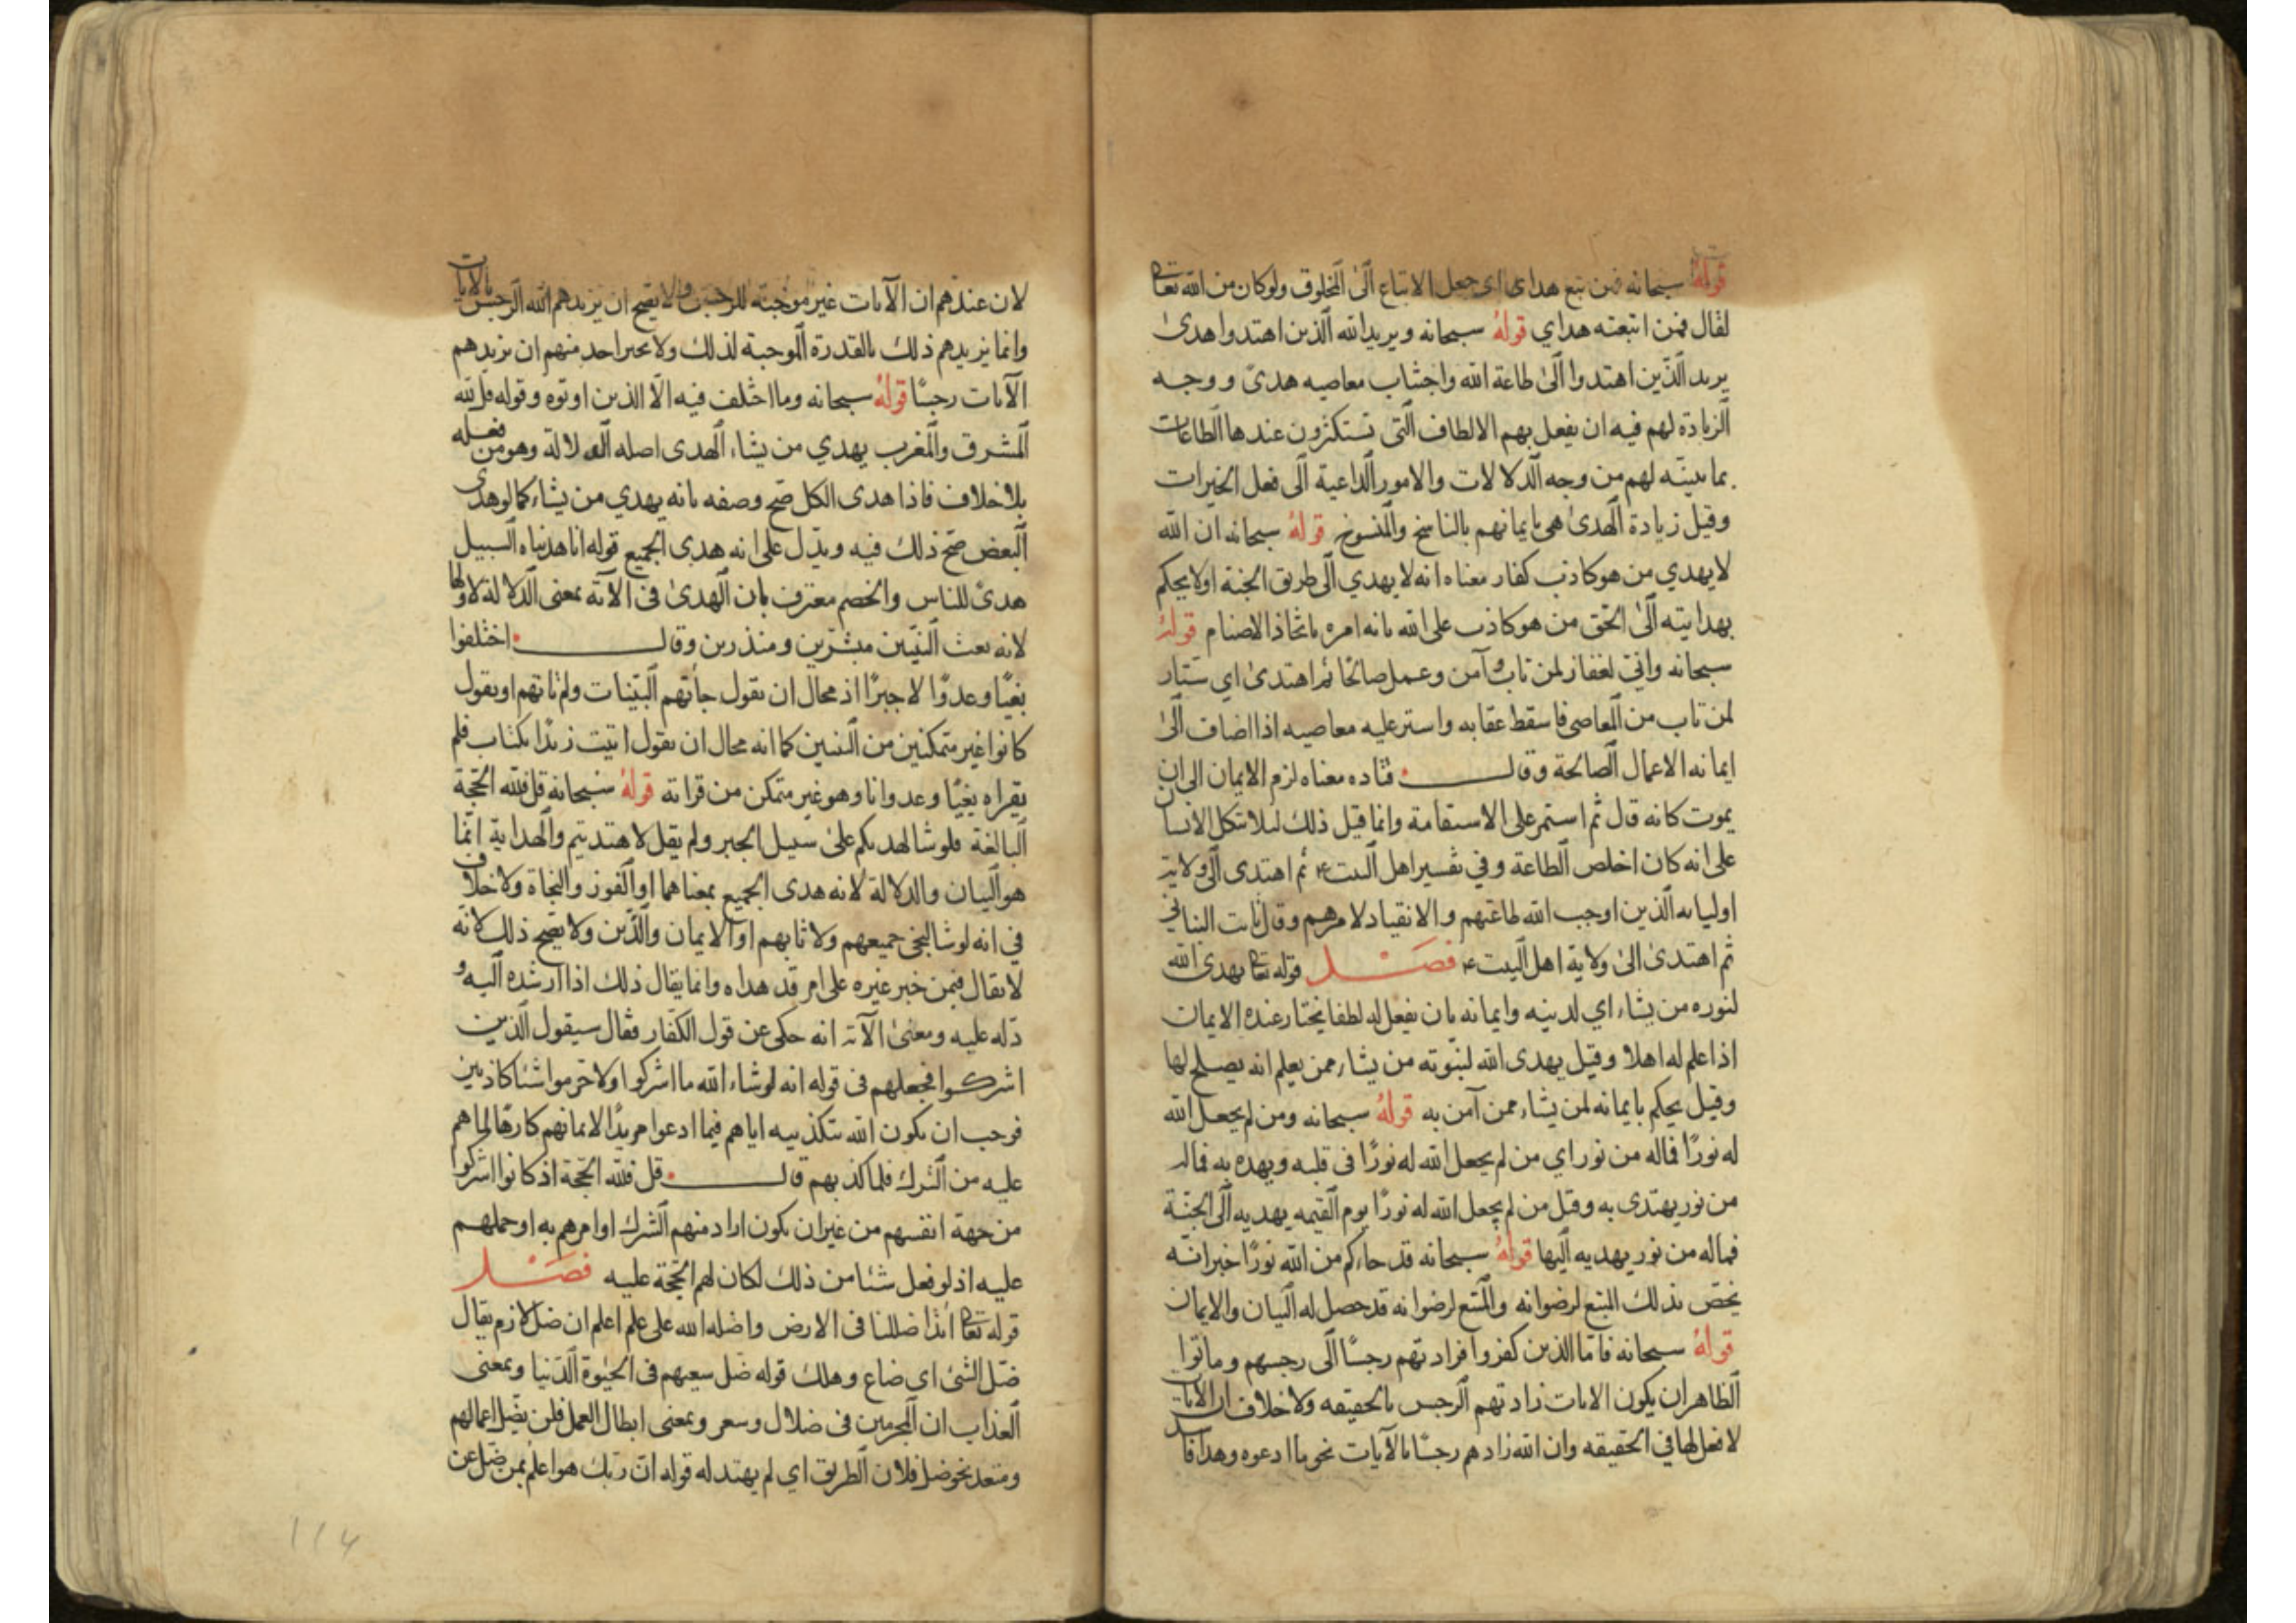 قوله سبحانه فمن تبع هداى اى جعل الاتباع الى المخلوق ولوكان من الله تعا
لقال فمن اتبعته هداي قوله سبحانه ويريد الله الذين اهتدوا هدى
يريد الذين اهتدوا الى طاعة الله واجتناب معاصيه هدى ووجه
الزيادة لهم فيه ان يفعل بهم الالطاف التى تستكثرون عندها الطاعات
بما بينه لهم من وجه الدلالات والامور الداعية الى فعل الخيرات
وقيل زيادة الهدى هى بايمانهم بالناسخ والمنسوخ قوله سبحانه ان الله
لا يهدي من هو كاذب كفار معناه انه لا يهدي الى طريق الجنة اولا يحكم
بهدايته الى الحق من هو كاذب على الله بانه امره باتخاذ الاصنام قوله
سبحانه واني لغفار لمن تاب وآمن وعمل صالحا ثم اهتدى اي ستار
لمن تاب من المعاصى فاسقط عقابه واستر عليه معاصيه اذا اضاف الى
ايمانه الاعمال الصالحة وقال قتاده معناه لزم الايمان الى ان
يموت كانه قال ثم استمر على الاستقامة وانما قيل ذلك لئلا تتكل الانسان
على انه كان اخلص الطاعة وفي تفسير اهل البيت ع ثم اهتدى الى ولاية
اوليائه الذين اوجب الله طاعتهم والانقياد لامرهم وقال ثابت البناني
ثم اهتدى الى ولاية اهل البيت ع فصل قوله تعا يهدى الله
لنوره من يشاء اي لدينه وايمانه بان يفعل له لطفا يختار عنده الايمان
اذا علم له اهلا وقيل يهدى الله لنبوته من يشاء ممن يعلم انه يصلح لها
وقيل يحكم بايمانه لمن يشاء ممن آمن به قوله سبحانه ومن لم يجعل الله
له نورا فماله من نور اي من لم يجعل الله له نورا فى قلبه ويهده به فماله
من نور يهتدى به وقيل من لم يجعل الله له نورا يوم القيمه يهديه الى الجنة
فماله من نور يهديه اليها قوله سبحانه قد جاءكم من الله نورا خبر انه
يختص بذلك المتبع لرضوانه والمتبع لرضوانه قد حصل له البيان والايمان
قوله سبحانه فاما الذين كفروا فزادتهم رجسا الى رجسهم وماتوا
الظاهر ان يكون الايات زادتهم الرجس بالحقيقه ولا خلاف ان الايات
لا فعل لها في الحقيقه وان الله زادهم رجسا بالآيات نحو ما ادعوه وهذا فاسد
لان عندهم ان الآيات غير موجبة للرجس ولا يصح ان يزيدهم الله الرجس بالايات
وانما يزيدهم ذلك بالقدرة الموجبة لذلك ولا يجبر احد منهم ان يزيدهم
الآيات رجسا قوله سبحانه وما اختلف فيه الا الذين اوتوه وقوله قل لله
المشرق والمغرب يهدي من يشاء الهدى اصله الدلالة وهو من فعله
بلا خلاف فاذا هدى الكل صح وصفه بانه يهدي من يشاء كما لو هدى
البعض صح ذلك فيه ويدل على انه هدى الجميع قوله انا هديناه السبيل
هدى للناس والخصم معترف بان الهدى فى الآية بمعنى الدلالة لاولها
لانه بعث النبيين مبشرين ومنذرين وقال اختلفوا
بغيا وعدوا لا جبرا اذ محال ان يقول جاءتهم البينات ولم تاتهم او يقول
كانوا غير متمكنين من التبيين كما انه محال ان يقول اتيت زيدا بكتاب فلم
يقراه بغيا وعدوانا وهو غير متمكن من قراته قوله سبحانه قل فلله الحجة
البالغة فلو شا لهديكم على سبيل الجبر ولم يقل لاهتديتم والهداية انما
هو البيان والدلالة لانه هدى الجميع بمعناهما او الفوز والنجاة ولا خلاف
في انه لو شا لنجى جميعهم ولا ثابهم او الايمان والدين ولا يصح ذلك لانه
لا يقال فيمن خبر غيره على امر قد هداه وانما يقال ذلك اذا ارشده اليه و
دله عليه ومعنى الآية انه حكى عن قول الكفار فقال سيقول الذين
اشركوا فجعلهم فى قوله انه لو شاء الله ما اشركوا ولا حرموا شئا كاذبين
فوجب ان يكون الله بتكذيبه اياهم فيما ادعوا مريدا لايمانهم كارها لما هم
عليه من الشرك فلما كذبهم قال قل فلله الحجة اذ كانوا اشركوا
من جهة انفسهم من غير ان يكون اراد منهم الشرك او امرهم به او حملهم
عليه اذ لو فعل شئا من ذلك لكان لهم الحجة عليه فصل
قوله تعا ائذا ضللنا فى الارض واضله الله على علم اعلم ان ضل لازم يقال
ضل الشئ اى ضاع وهلك قوله ضل سعيهم فى الحيوة الدنيا وبمعنى
العذاب ان المجرمين فى ضلال وسعر وبمعنى ابطال العمل فلن يضل اعمالهم
ومتعد نحو ضل فلان الطريق اي لم يهتد له قوله ان ربك هو اعلم بمن ضل عن
۱۱۴